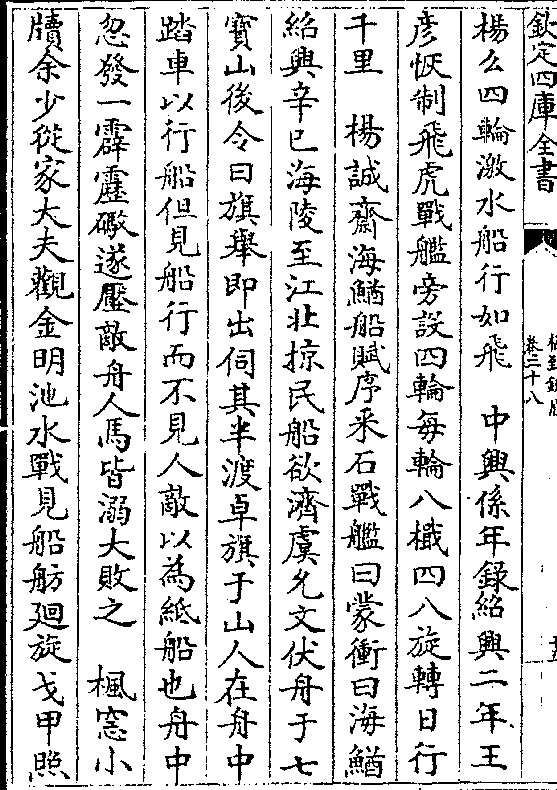 欽定四庫全書
卷二十八
楊么四輪激水船行如飛　中興係年錄紹興二年王
彦恢制飛虎戰艦旁設四輪每輪八檝四八旋轉日行
千里　楊誠齋海鰌船賦序采石戰艦曰蒙衝曰海鰌
紹興辛巳海陵至江北掠民船欲濟虞允文伏舟于七
寳山後令曰旗舉即出伺其半渡卓旗于山人在舟中
踏車以行船但見船行而不見人敵以為紙船也舟中
忽發一霹靂礮遂壓敵舟人馬皆溺大敗之　楓窓小
牘余少從家大夫觀金明池水戰見船舫廻旋戈甲照